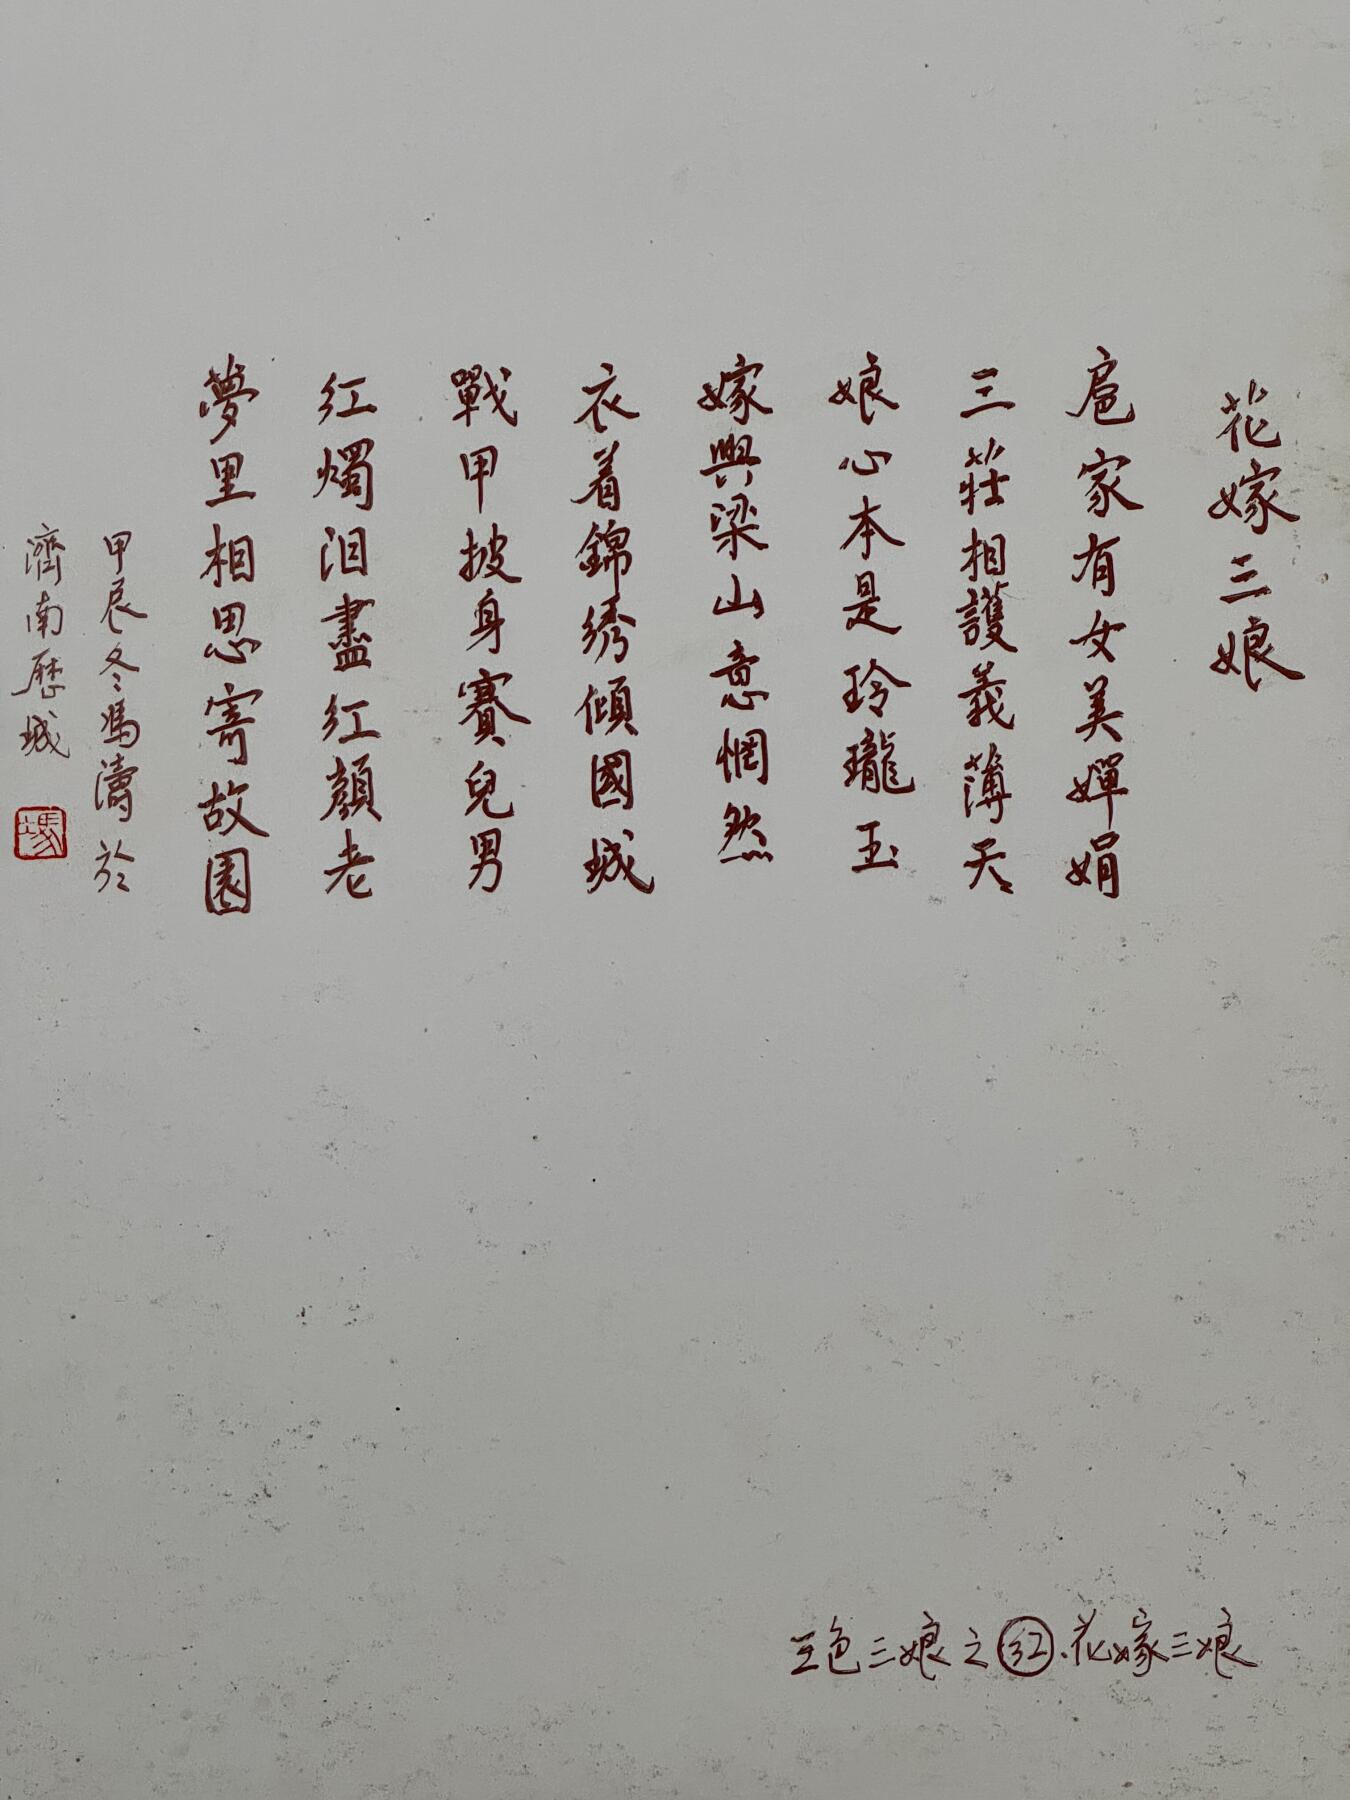 花嫁三娘
扈家有女美嬋娟
三莊相護義薄天
娘心本是玲瓏玉
嫁與梁山意惘然
衣着錦绣傾國城
戰甲披身賽兒男
红燭泪盡红顏老
夢里相思寄故園
甲辰冬馮濤於
濟南歷城
馮
五色三娘之红、花嫁三娘